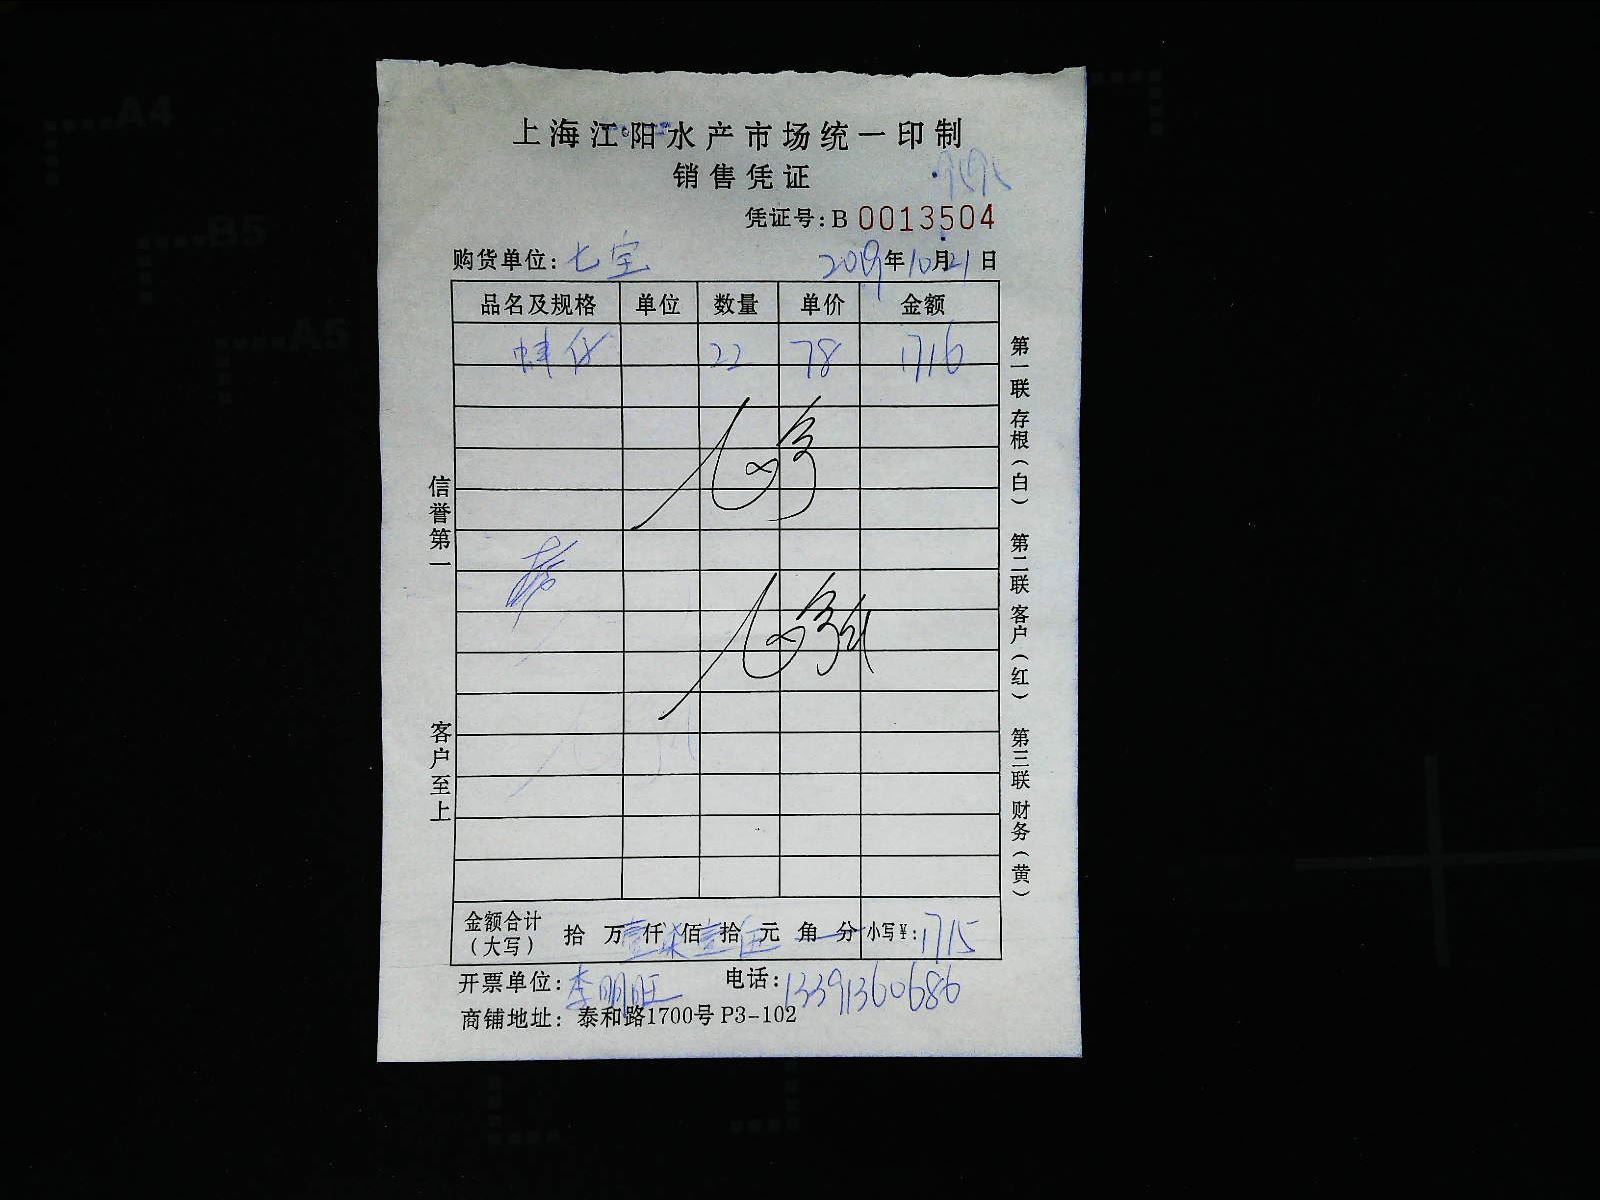 上海江阳水产市场统一印制
销售凭证
凭证号: B 0013504
购货单位: 七宝 2019年10月21日
品名及规格 单位 数量 单价 金额
仔 22 78 1716
信誉第一
客户至上
第一联 存根(白) 第二联 客户(红) 第三联 财务(黄)
金额合计(大写) 拾 万壹仟柒佰壹拾伍元 角 分 小写¥: 1715
开票单位: 李明旺 电话: 13391360686
商铺地址: 泰和路1700号 P3-102